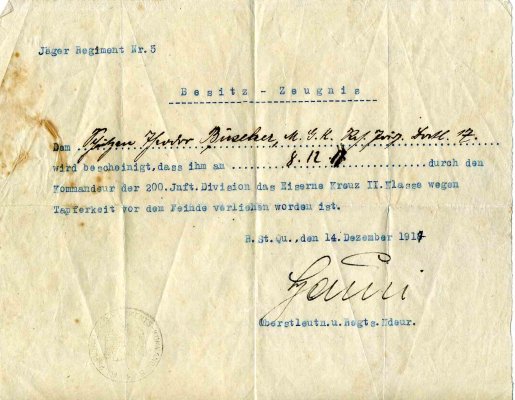 Jäger Regiment Nr. 5
Besitz - Zeugnis
Dem Schützen Theodor Büscher, M. G. K. Rs. Jäg. Batl. 17.
wird bescheinigt, dass ihm am 8.12.17 durch den
Kommandeur der 200. Inft. Division das Eiserne Kreuz II. Klasse wegen
Tapferkeit vor dem Feinde verliehen worden ist.
R. St. Qu., den 14. Dezember 1917
Oberstleutn. u. Regts. Kdeur.